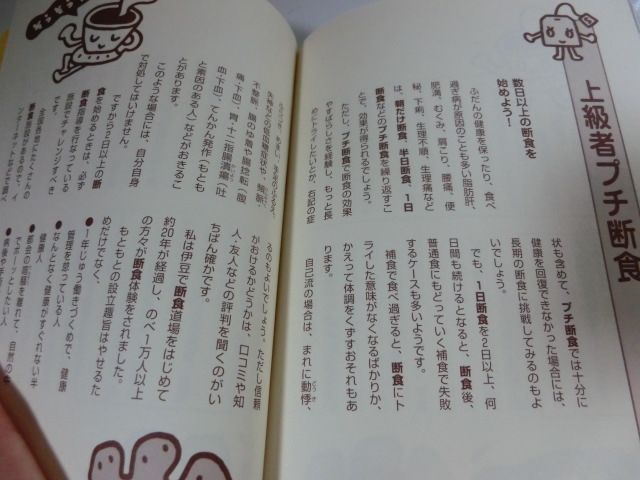 上級者プチ断食
数日以上の断食を
始めよう！
ふだんの健康を保ったり、食べ
過ぎ病が原因のことも多い脂肪肝、
肥満、むくみ、肩こり、腰痛、便
秘、下痢、生理不順、生理痛など
は、朝だけ断食、半日断食、1日
断食などのプチ断食を繰り返すこ
とで、効果が得られるでしょう。
ただし、プチ断食で断食の効果
やすばらしさを経験し、もっと長
めにトライしたいとか、右記の症
状も含めて、プチ断食では十分に
健康を回復できなかった場合には、
長期の断食に挑戦してみるのもよ
いでしょう。
でも、1日断食を2日以上、何
日間も続けるとなると、断食後、
普通食にもどっていく補食で失敗
するケースも多いようです。
補食で食べ過ぎると、断食にト
ライした意味がなくなるばかりか、
かえって体調をくずすおそれもあ
ります。
自己流の場合は、まれに動悸、
不整脈、腸のゆ着や腸捻転（腹
痛、下血）、胃・十二指腸潰瘍（吐
血、下血）、てんかん発作（もとも
と素因のある人）などがおきるこ
とがあります。
このような場合には、自分自身
で対処してはいけません。
ですから2日以上の断
食を始めるときは、必ず
断食指導を行なっている
施設でチャレンジすべき
です。
るのもよいでしょう。ただし信頼
がおけるかどうかは、口コミや知
人・友人などの評判を聞くのがい
ちばん確かです。
私は伊豆で断食道場をはじめて
約20年が経過し、のべ1万人以上
の方々が断食体験をされました。
もともとの設立趣旨はやせるた
めだけでなく、
●1年じゅう働きづくめで、健康
管理を怠っている人
●なんとなく健康がすぐれない半
健康人
●都会の喧騒を離れて、自然の
でボーッとしたい人